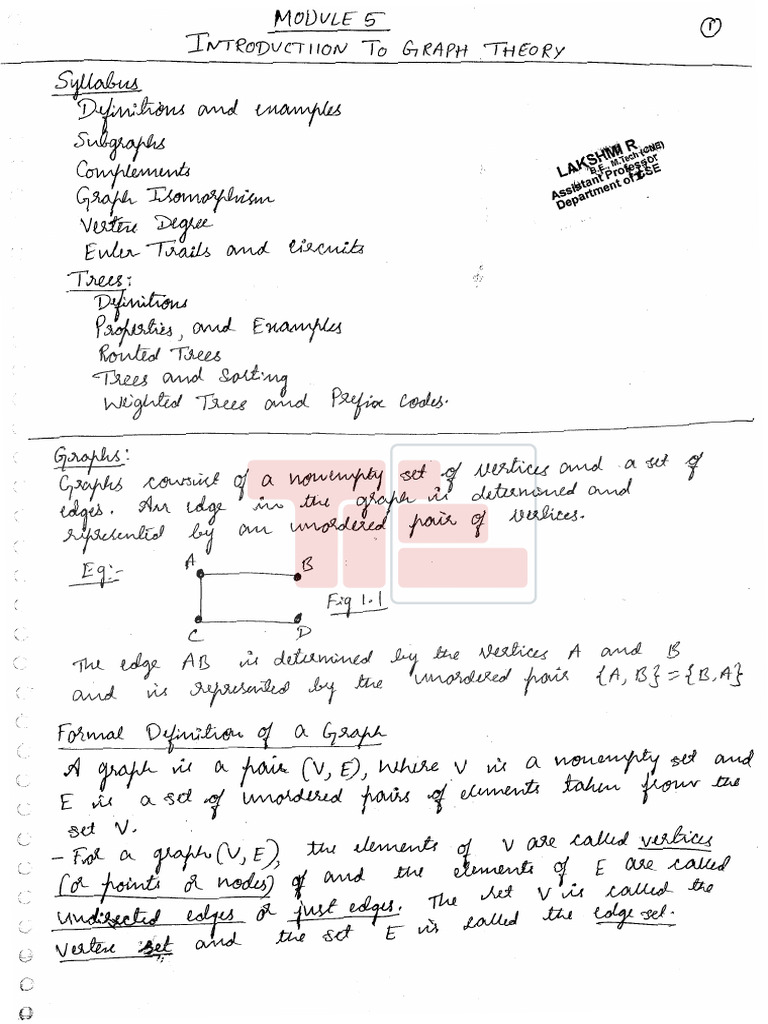 MODULE 5
1
INTRODUCTIION TO GRAPH THEORY
Syllabus
Definitions and examples
Subgraphs
Complements
Graph Isomorphism
Vertex Degree
Euler Trails and Circuits
LAKSHMI R
B.E., M.Tech (CNE)
Assistant Professor
Department of CSE
Trees:
Definitions
Properties, and Examples
Routed Trees
Trees and Sorting
Weighted Trees and Prefix Codes.
Graphs:
Graphs consist of a nonempty set of vertices and a set of
edges. An edge in the graph is determined and
represented by an unordered pair of vertices.
Eg:-
A B
C D
Fig 1.1
The edge AB is determined by the vertices A and B
and is represented by the unordered pair {A, B} = {B, A}
Formal Definition of a Graph
A graph is a pair (V, E), where V is a nonempty set and
E is a set of unordered pairs of elements taken from the
set V.
- For a graph (V, E), the elements of V are called vertices
(or points or nodes) of and the elements of E are called
undirected edges or just edges. The set V is called the
vertex set and the set E is called the edge set.